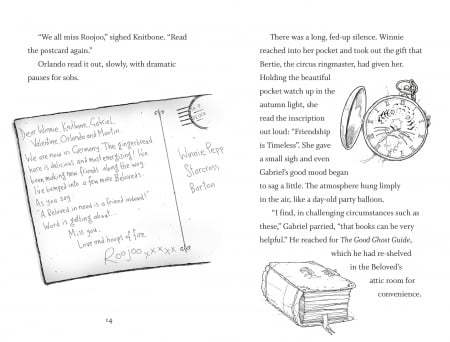 “We all miss Roojoo,” sighed Knitbone. “Read
the postcard again.”
Orlando read it out, slowly, with dramatic
pauses for sobs.
Dear Winnie, Knitbone, Gabriel,
Valentine, Orlando and Martin.
We are now in Germany. The gingerbread
here is delicious and most energising! I've
been making new friends along the way.
I've bumped into a few more Beloveds.
As you say,
“A Beloved in need is a friend indeed!”
Word is getting about...
Miss you,
Love and hoops of fire
Roojoo xxxxx
Winnie Pepp
Starcross
Barton
14
There was a long, fed-up silence. Winnie
reached into her pocket and took out the gift that
Bertie, the circus ringmaster, had given her.
Holding the beautiful
pocket watch up in the
autumn light, she
read the inscription
out loud: “Friendship
is Timeless”. She gave
a small sigh and even
Gabriel’s good mood began
to sag a little. The atmosphere hung limply
in the air, like a day-old party balloon.
“I find, in challenging circumstances such as
these,” Gabriel parried, “that books can be very
helpful.” He reached for The Good Ghost Guide,
which he had re-shelved
in the Beloved’s
attic room for
convenience.